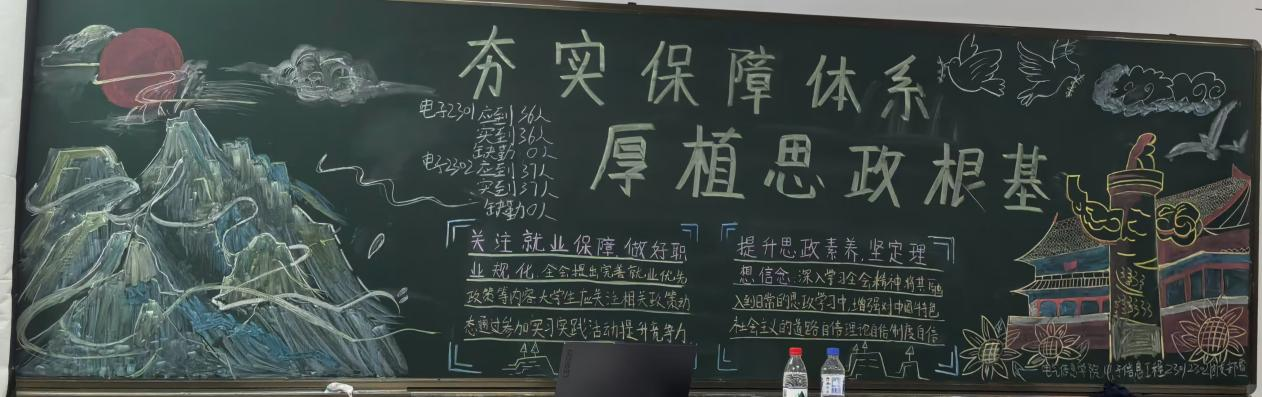 夯实保障体系
厚植思政根基
电子2301 应到36人
实到36人
缺勤 0人
电子2302 应到37人
实到37人
缺勤0人
关注就业保障,做好职
业规化,全会提出完善就业优先
政策等内容大学生应关注相关政策动
态通过参加实习实践活动提升竞争力
提升思政素养,坚定理
想信念:深入学习全会精神,将其融
入到日常的思政学习中,增强对中国特色
社会主义的道路自信理论自信制度自信
电子信息学院 电子信息工程2301 2302团支部宣